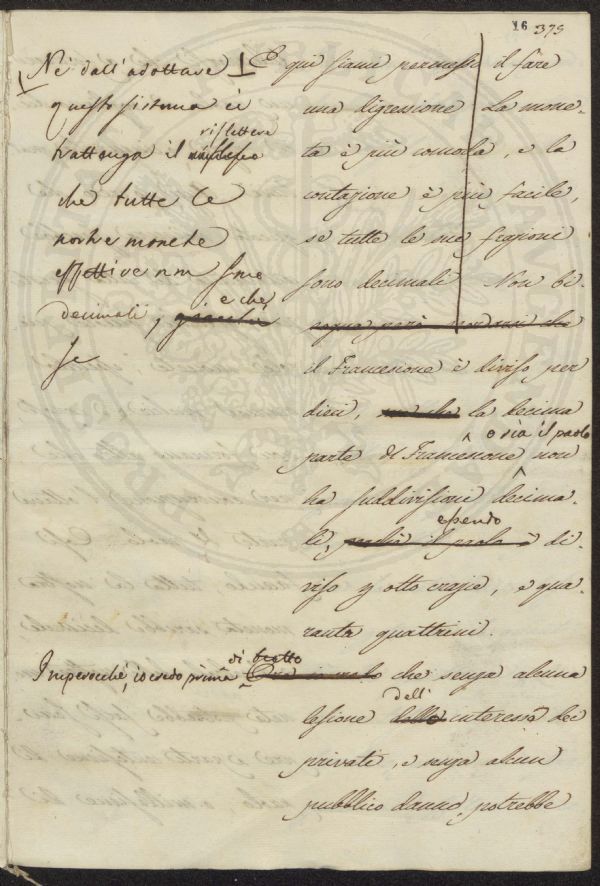 16 375
Né dall'adottare
questo sistema ci
rattenga il
riflettere
che tutte le
nostre monete
effettive non sono
decimali,
e che
se
E qui siami permesso il fare
una digressione La mone-
ta è più comoda, e la
contazione è più facile,
se tutte le sue frazioni
sono decimali Non bi-
sogna però
che
il Francesione è diviso per
dieci, ma che la decima
o sia il paolo
parte di Francesone non
ha suddivisioni decima-
essendo
li, il paolo è di-
viso in otto crazie, e qua-
ranta quattrini.
di tratto
Imperocché, io credo prima che senza alcuna
dell'
lesione dello interesse dei
privati, e senza alcun
pubblico danno, potrebbe